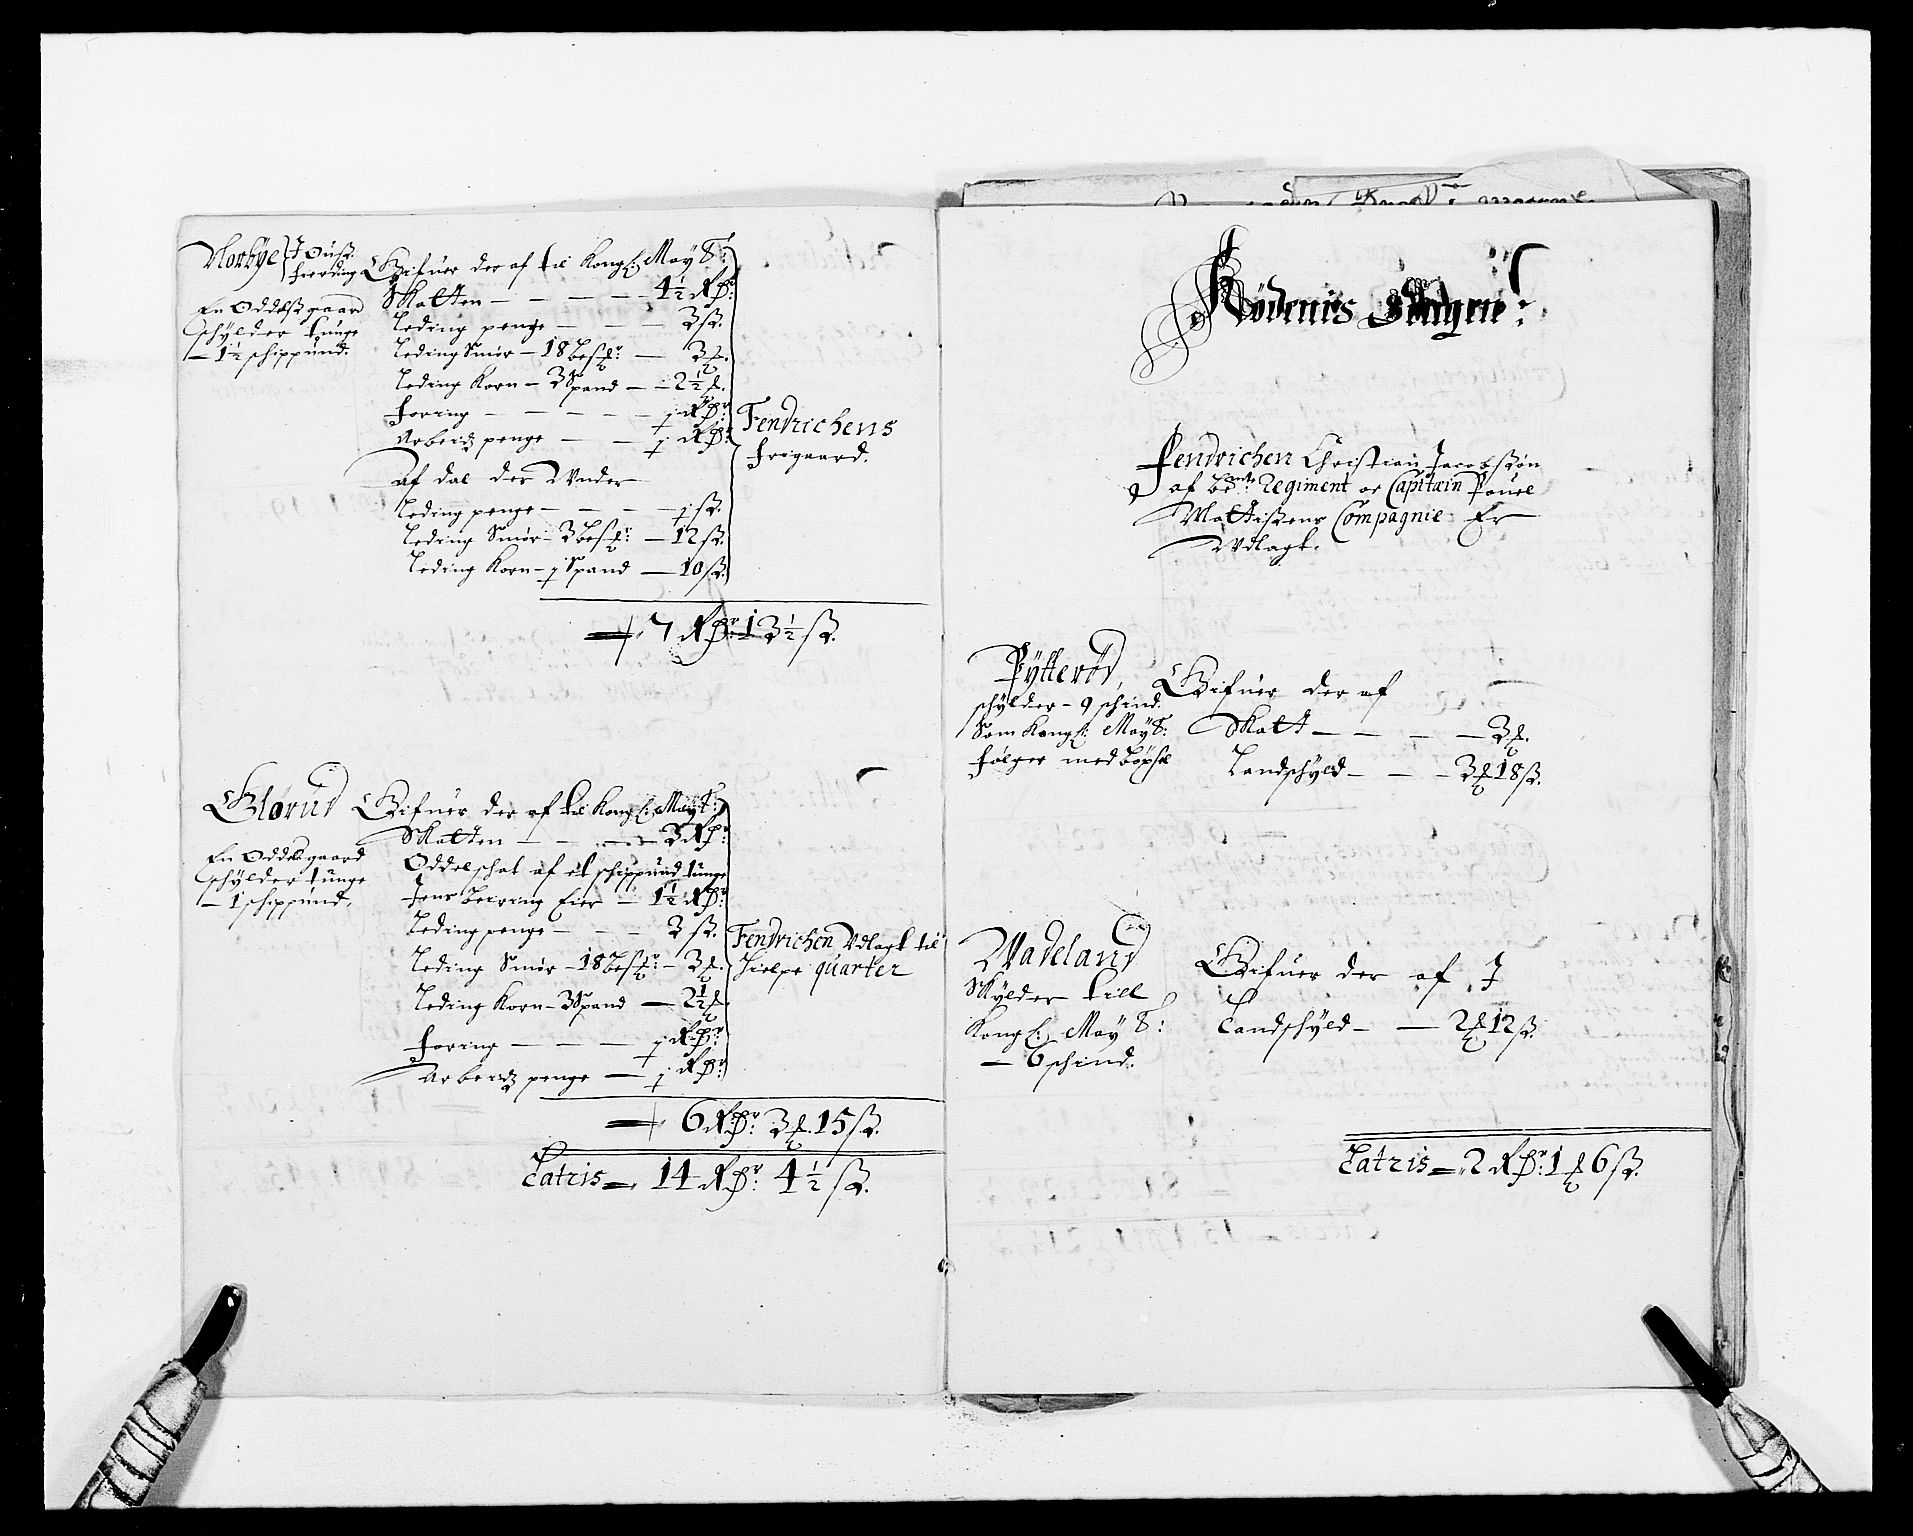 Norbÿe J Ouß. fierding
En Oddelß gaard
schÿlder tunge
— 1½ schippund.
Gifuer der af til Kongl: Maÿ T:
Skatten — — — — 4½ Rdr:
Leding penge — — — 3 ß.
Leding Smør — 18 — 3
Leding Korn — 3 Spand — 2½
foring — — — — j Rdr:
Arbeidz penge — — j Rdr:
Af dal der Vnder
Leding penge — — — j ß.
Leding Smør — 3 — 12 ß.
Leding Korn — j Spand — 10 ß.
Fendrichens
frigaard.
7 Rdr: 13½ ß.
Glørud
En Oddels gaard
schÿlder tunge
— 1 schippund.
Gifuer der af til Kongl: Maÿ T:
Skatten — — — 3 Rdr
Oddelschat af et schippund tunge
Jens Eier — 1½ Rdr:
Leding penge — — — 3 ß.
Leding Smør — 18 — 3
Leding Korn — 3 Spand — 2½
foring — — — j Rdr:
Arbeidz penge — j Rdr:
Fendrichen Vdlagt til
Hielpe quarter
6 Rdr: 3 15 ß.
Latris — 14 Rdr: 4½ ß.
Rødenes
Fendrichen Christian Jacobsøn
af bemte Regiment oc Capitæin Pouel
Mattißens Compagnie Er
Vdlagt.
Pÿtterød,
schÿlder — 9 schind.
Som Kongl: Maÿ T:
følger med bøxel
Gifuer der af
Skatt — — — 3
Landschÿld — — — 3 18 ß.
Wadeland
Skÿlder till
Kongl: Maÿ T:
— 6 schind.
Gifuer der af J
Landschÿld — — 2 12 ß.
Latris — 2 Rdr: 1 6 ß.